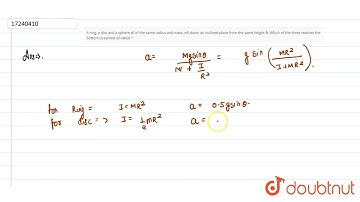 17240410
A ring, a disc and a sphere all of the same radius and mass, roll down an inclined plane from the same height h. Which of the three reaches the bottom (i) earliest (ii) latest ?
Ans⇒. a = Mgsinθ / (M + I/R²) = g sin (MR² / (I+MR²))
for Ring = I = MR² a = 0.5gsinθ.
for disc => I = 1/2 MR² a =
doubtnut